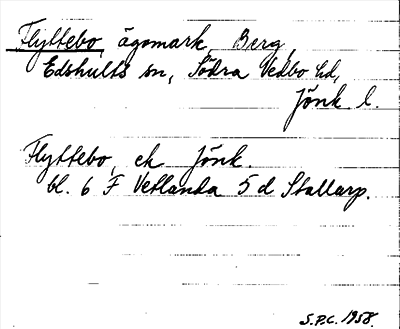 Flyttebo, ägomark, Berg,
Edshults sn, Södra Vedbo hd,
Jönk l.
Flyttebo, ek Jönk.
bl. 6 F Vetlanda 5 d Stallarp.
S.P.C. 1958.